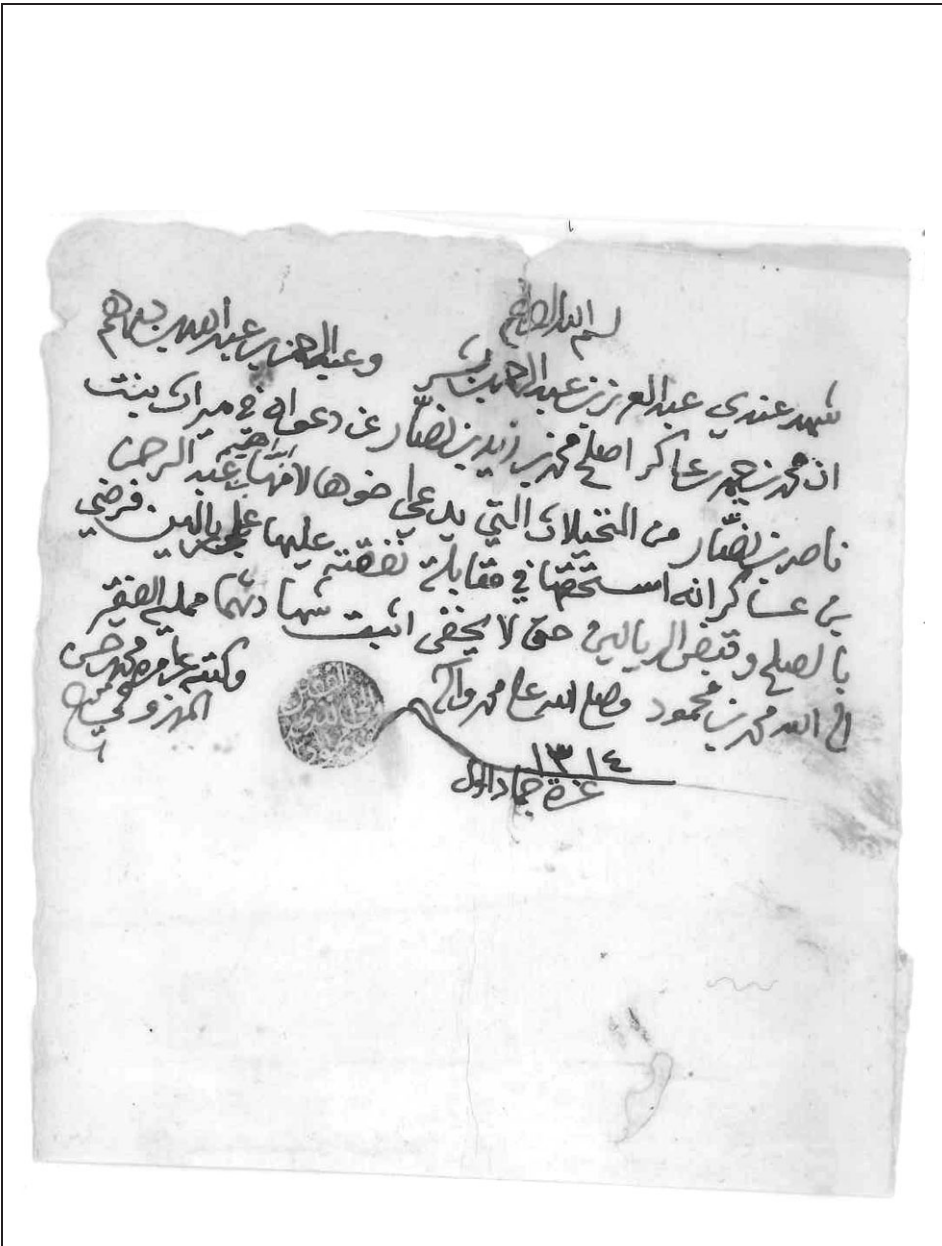 بسم الله الرحمن الرحيم
شهد عندي عبد العزيز بن عبد الرحمن بن بشر وعبد الرحمن بن عبد الله بن
ان محمد بن عساكر اصلح محمد بن زيد بن نصار عن دعواه في ميراث بنت
ناصر بن نصار من النخيلات التي يدعي اخوها لامها ابراهيم بن عبد الرحمن
بن عساكر انه استحقها في مقابلة نفقته عليها بريالين فرضي
بالصلح وقبض الريالين حتى لا يخفى اثبت شهادتهما ممليه الفقير
الى الله محمد بن محمود وصلى الله على محمد وآله وكتبه عن امره محمد
١٣١٤
غرة جماد الاول